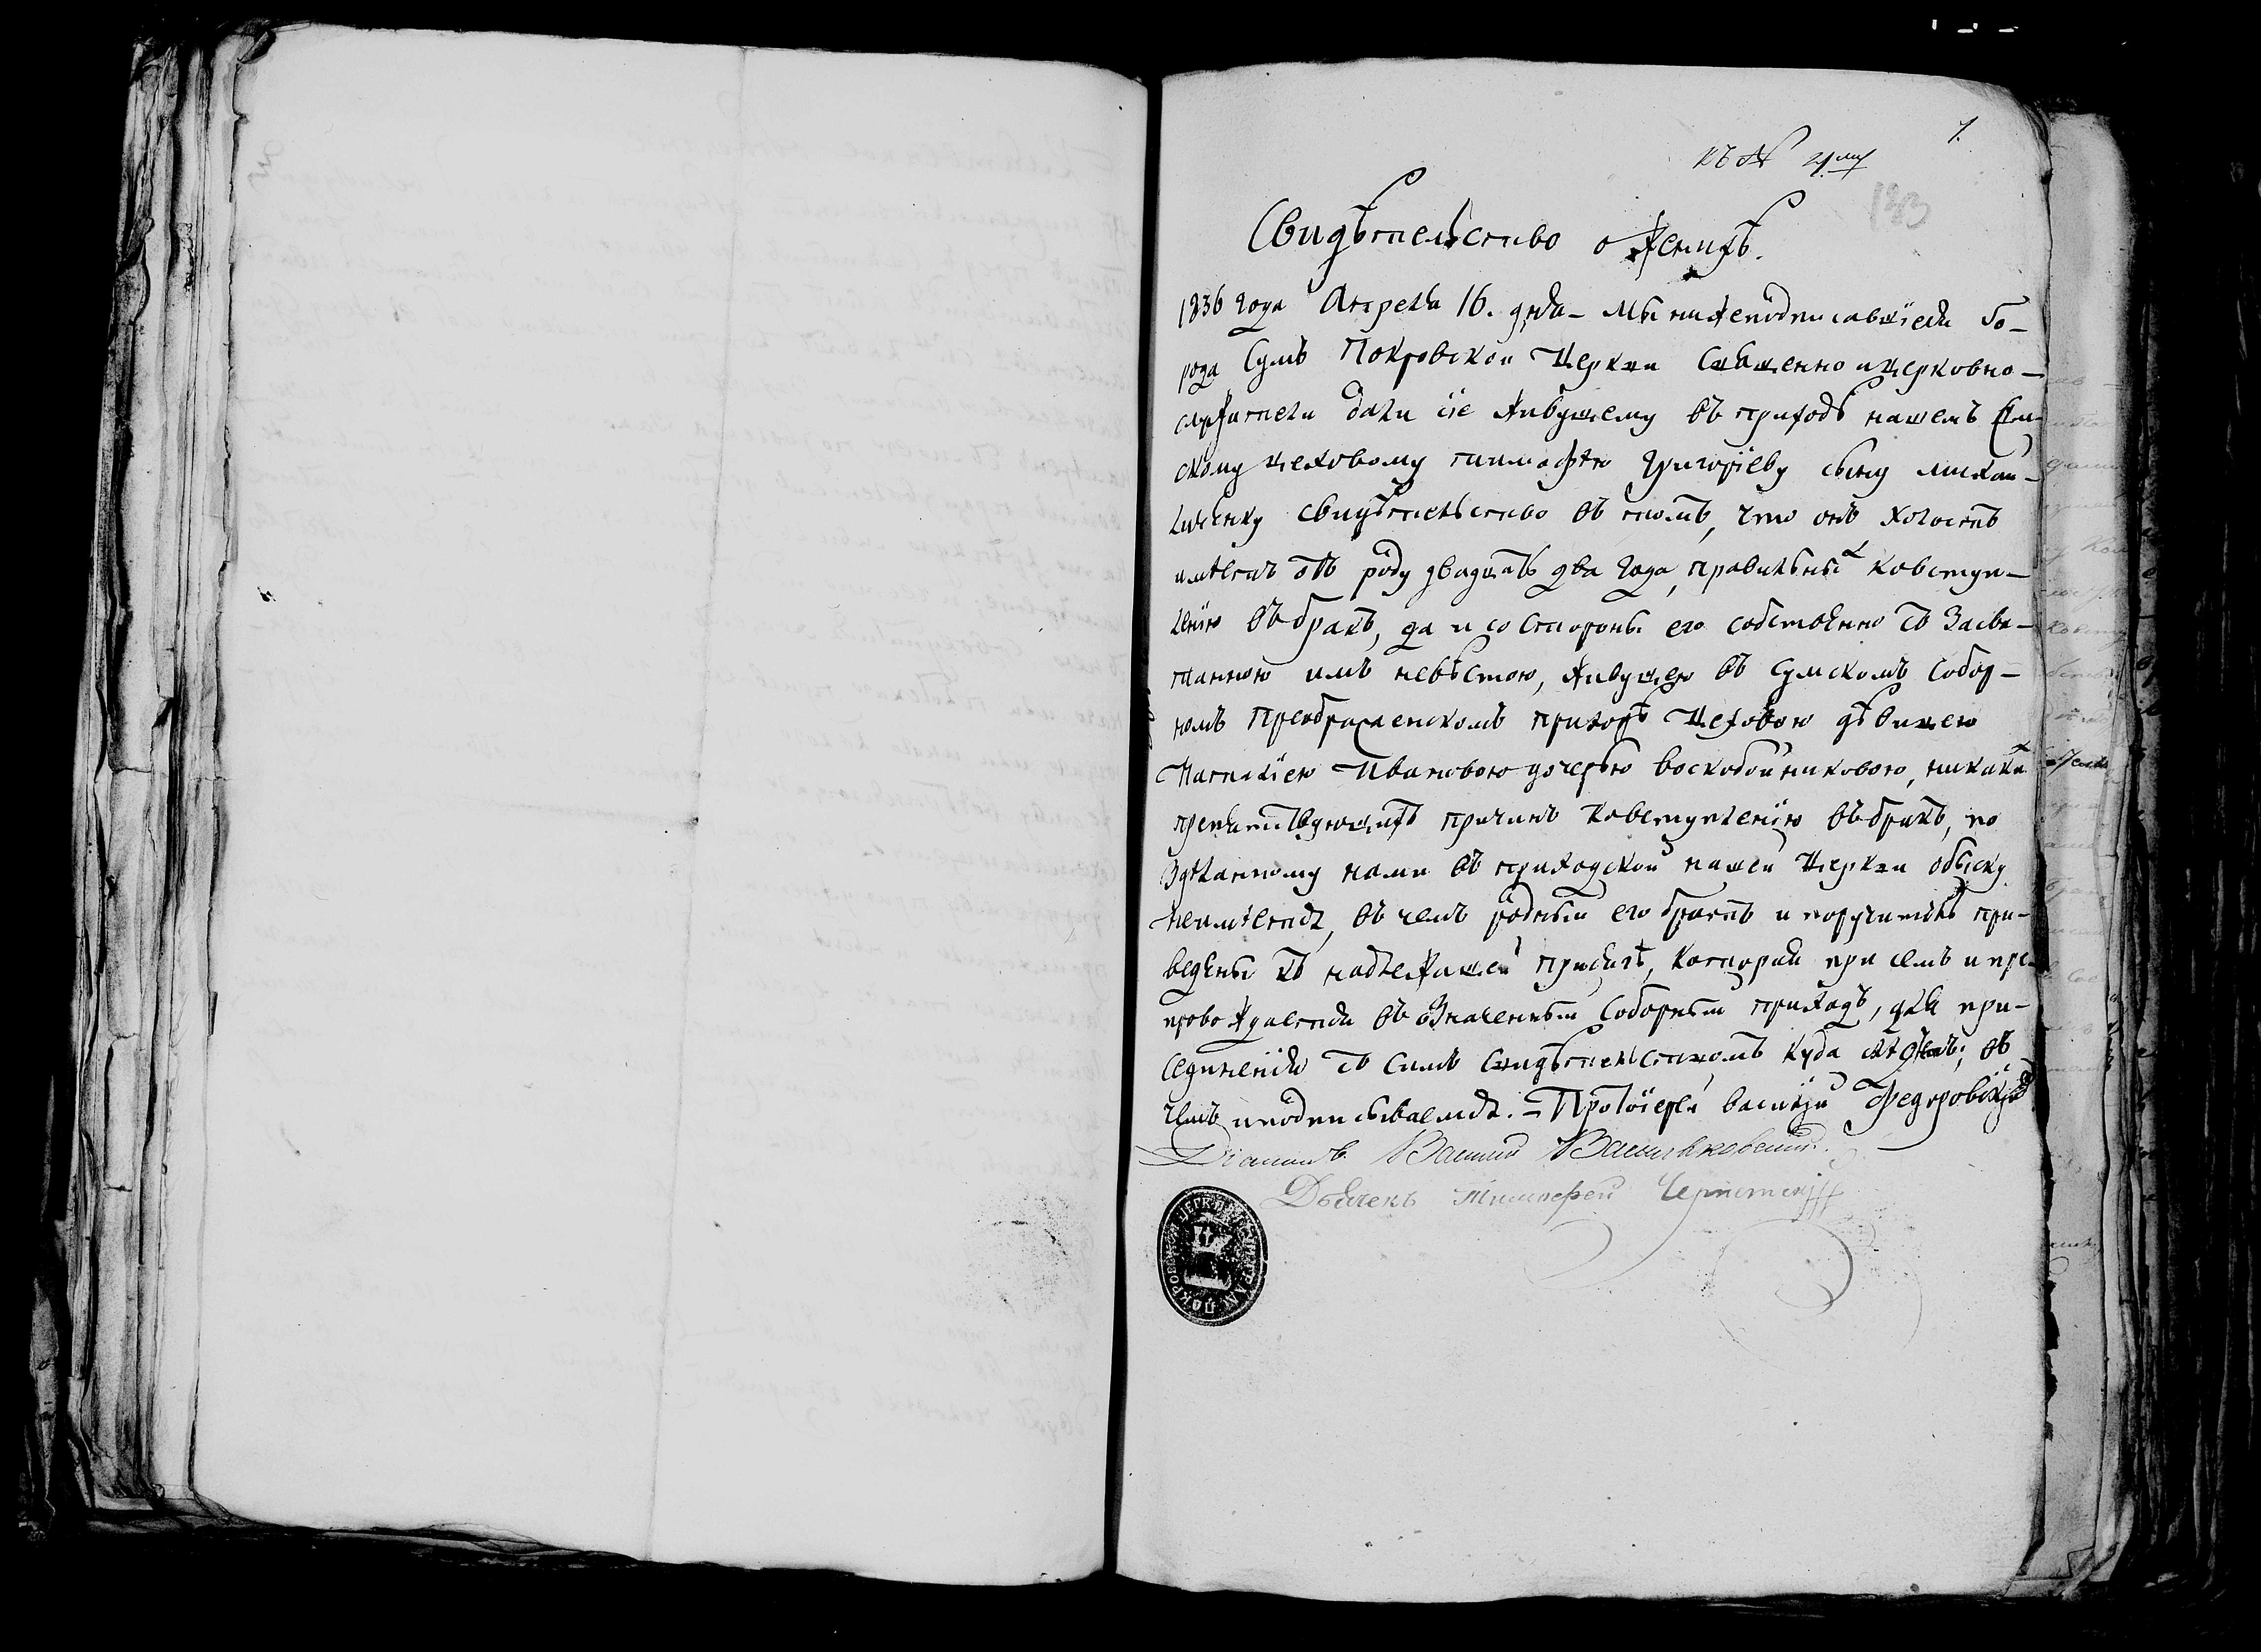 7.
къ № 21му
133
Свидѣтельство о женихѣ.
1836 года Апреля 16. дня – Мы нижеподписавшіеся го–
рода Сумъ Покровской Церкви Священно и церковно–
служители дали сіе живущему въ приходѣ нашемъ Сум–
скому цеховому тимофѣю Григоріеву сыну михай–
личенку свидѣтельство въ томъ, что онъ холостъ
имѣетъ отъ роду двадцать два года, правильный ковступ–
ленію въ бракъ, да и со Стороны его собственно съ Засва–
танною имъ невѣстою, живущею въ Сумскомъ Собор–
номъ Преображенскомъ приходѣ Цеховою дѣвицею
Наталіею Ивановою дочерью воскобойниковою, никакихъ
препятствующихъ причинъ ковступленію въ бракъ, по
Здѣланному нами въ приходской нашей Церкви обыску
неимѣется, въ чемъ родный его братъ и поручитель при–
ведены къ надлежащей присягѣ, которая при семъ и пре–
провождается въ означенный Соборный приходъ, для при–
Единенія съ симъ Свидѣтельствомъ куда слѣдуетъ; въ
чемъ и подписываемся. – Протоіерей василій Федоровскій
Діаконъ Василий Васильковский.
Дьячекъ Тимофей